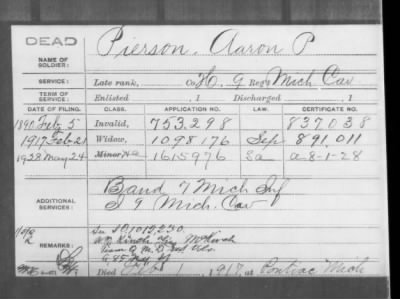 DEAD
NAME OF SOLDIER: Pierson, Aaron P
SERVICE: Late rank, Co. H, 9 Reg't Mich Cav
TERM OF SERVICE: Enlisted , 1 Discharged , 1
DATE OF FILING. CLASS. APPLICATION NO. LAW. CERTIFICATE NO.
1890 Feb 5 Invalid, 753.298 837.038
1917 Feb 21 Widow, 1098176 Sep 891.011
1928 May 24 Minor, 1615976 Sa a-8-1-28
ADDITIONAL SERVICES:
Band 7 Mich Inf
I 9 Mich. Cav
REMARKS:
Died 1, 1917, at Pontiac Mich